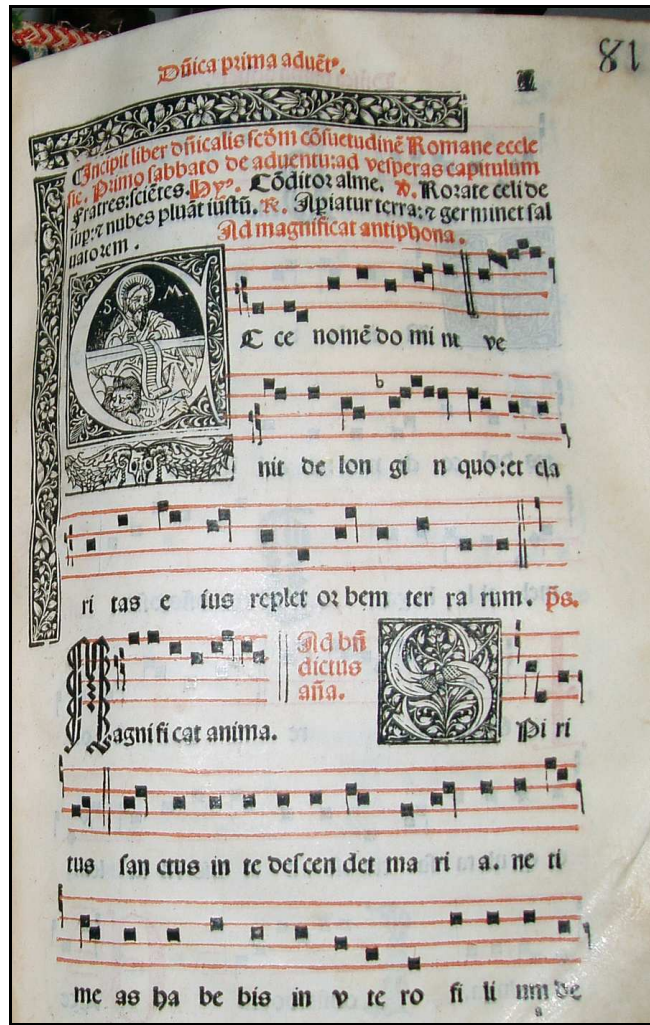 Dn̄ica prima aduēt⁹.
81
Incipit liber dn̄icalis scd̄m cōsuetudinē Romane eccle
sie. Primo sabbato de aduentu: ad vesperas capitulum
Fratres: sciētes. Hy⁹. Cōditor alme. ℣. Rorate celi de
sup: ⁊ nubes pluāt iustū. ℟. Apiatur terra: ⁊ germinet sal
uatorem.
Ad magnificat antiphona.
S. M.
E C ce nomē do mi ni ve
nit de lon gi n quo: et cla
ri tas e ius replet or bem ter ra rum. p̄s.
Magnificat anima.
Ad bn̄
dictus
an̄a.
S Pi ri
tus san ctus in te descen det ma ri a. ne ti
me as ha be bis in v te ro fi li um de